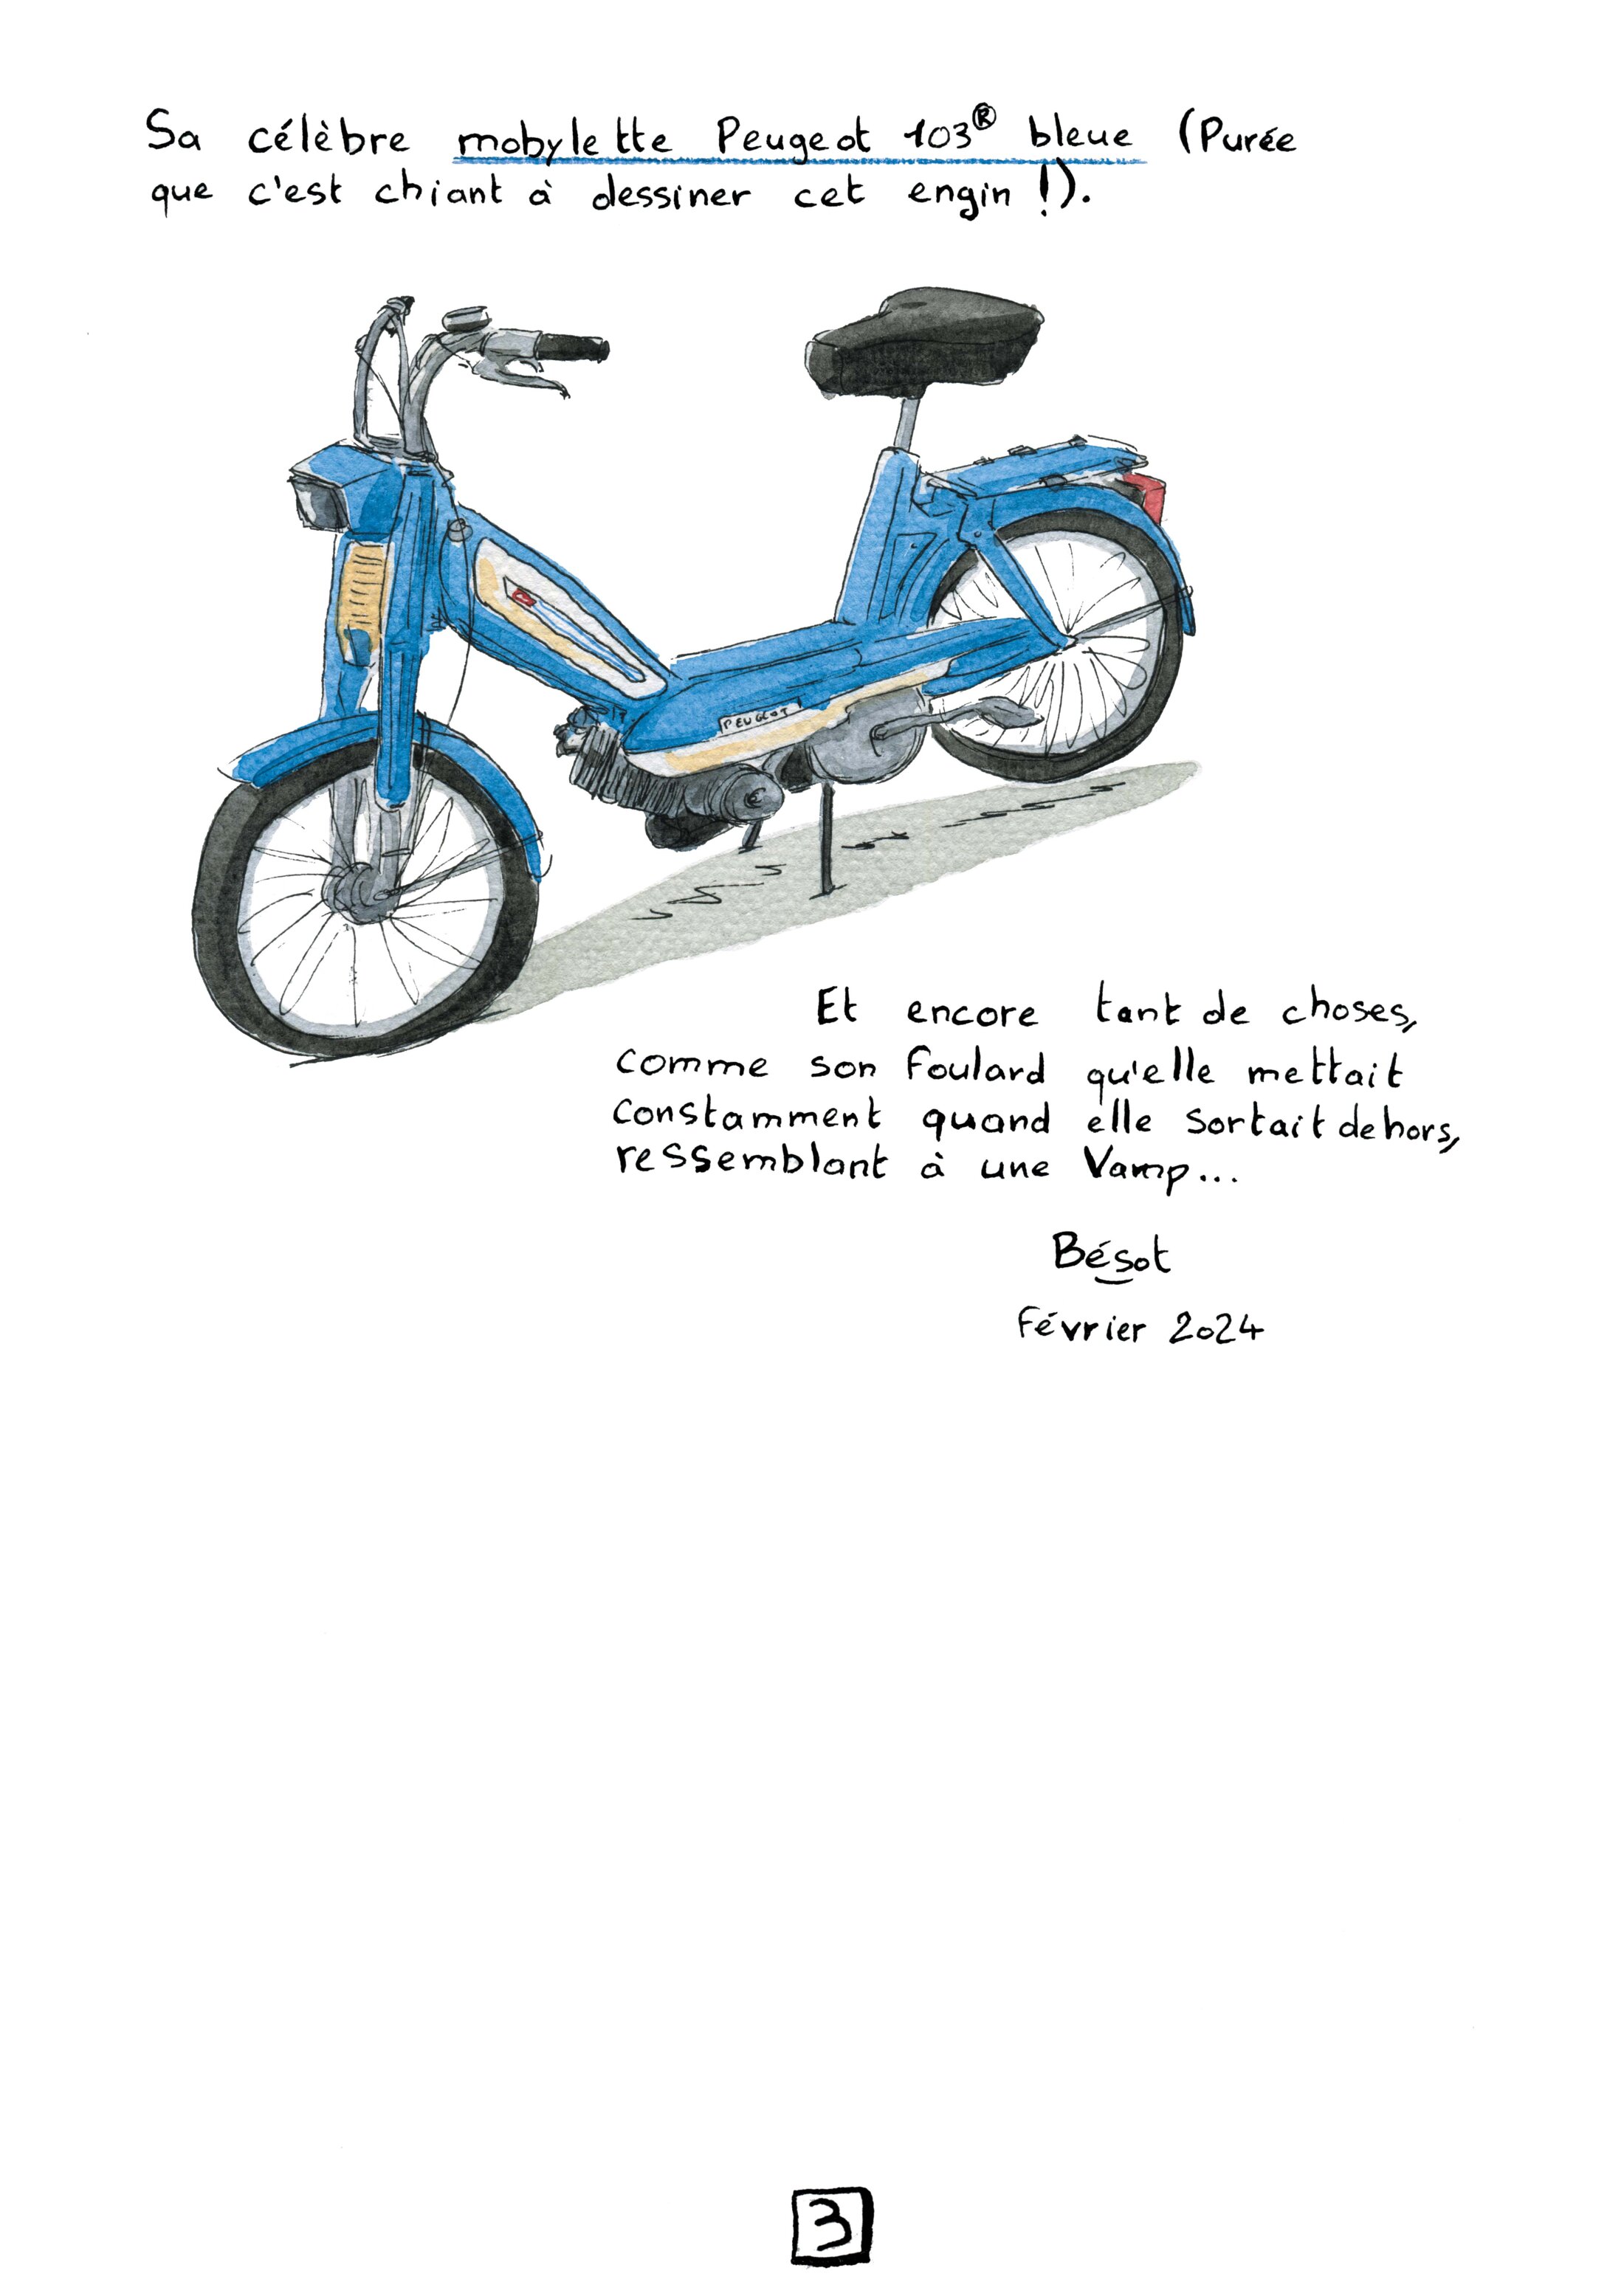 Sa célèbre mobylette Peugeot 103® bleue (Purée
que c'est chiant à dessiner cet engin !).
PEUGEOT
Et encore tant de choses,
comme son foulard qu'elle mettait
constamment quand elle sortait dehors,
ressemblant à une Vamp...
Bésot
Février 2024
3